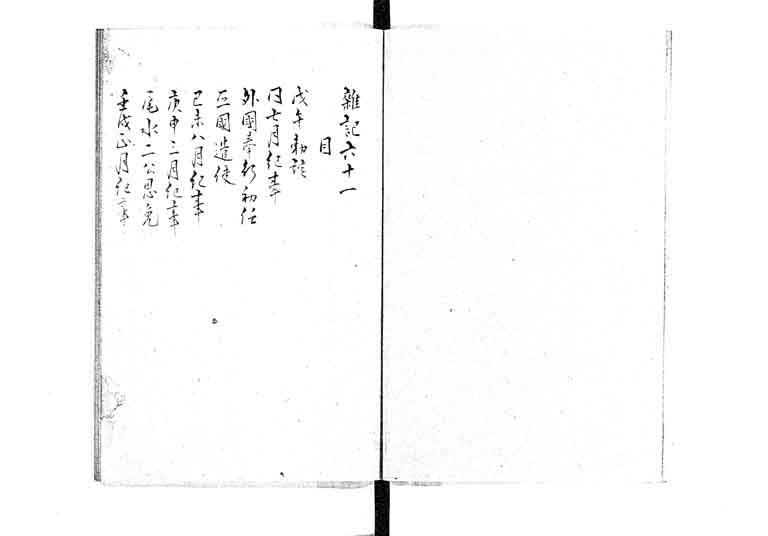 雑記六十一
目
戊午勅諚
同七月紀事
外國奉行初任
五國遣使
己未八月紀事
庚申三月紀事
尾水二公恩免
壬戌正月紀事